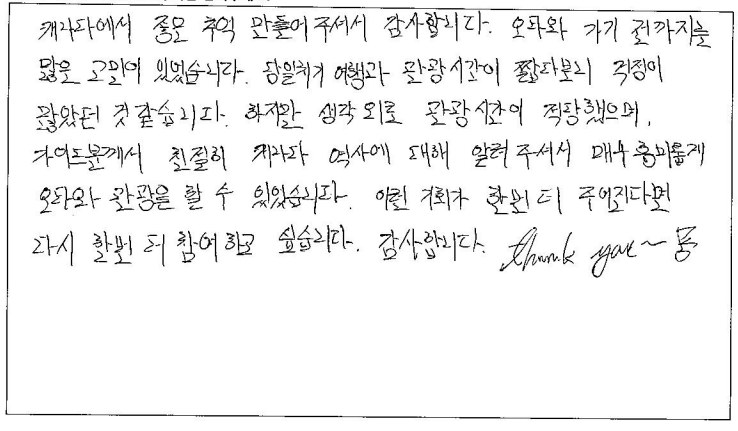 캐나다에서 좋은 추억 만들어 주셔서 감사합니다. 오타와 가기 전까지는
많은 고민이 있었습니다. 당일치기 여행과 관광시간이 짧다보니 걱정이
많았던 것 같습니다. 하지만 생각 외로 관광시간이 적당했으며,
가이드분께서 친절히 캐나다 역사에 대해 알려 주셔서 매우 흥미롭게
오타와 관광을 할 수 있었습니다. 이런 기회가 한번 더 주어진다면
다시 한번 더 참여하고 싶습니다. 감사합니다. thank you~